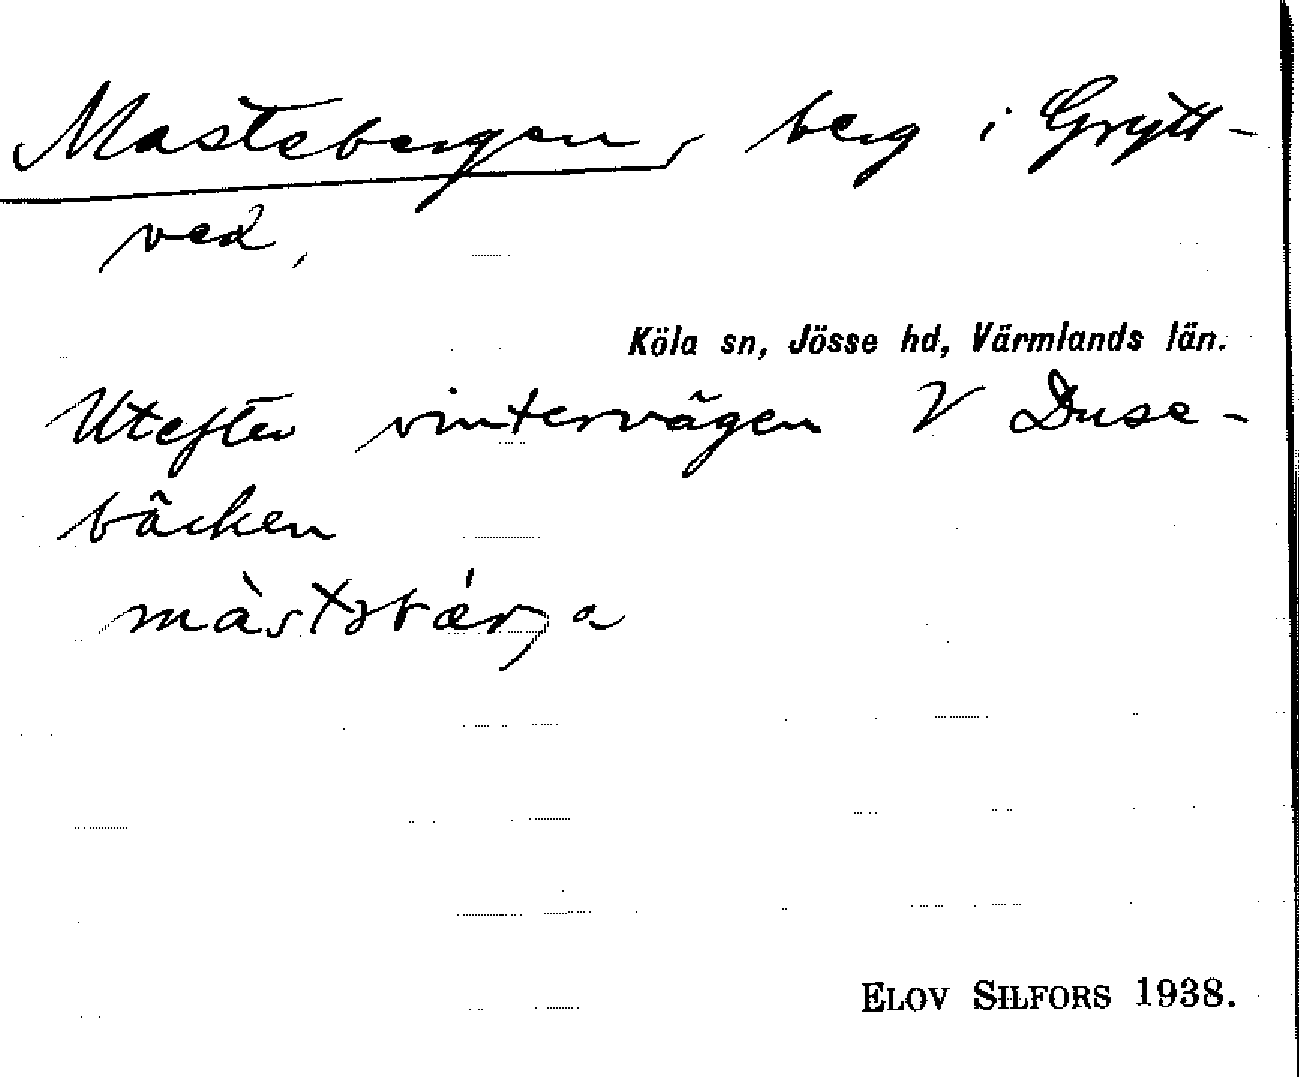 Mastebergen, berg i Grytt-
ved,
Köla sn, Jösse hd, Värmlands län.
Utefter vintervägen V Duse-
bäcken
màstəbæŕja
ELOV SILFORS 1938.